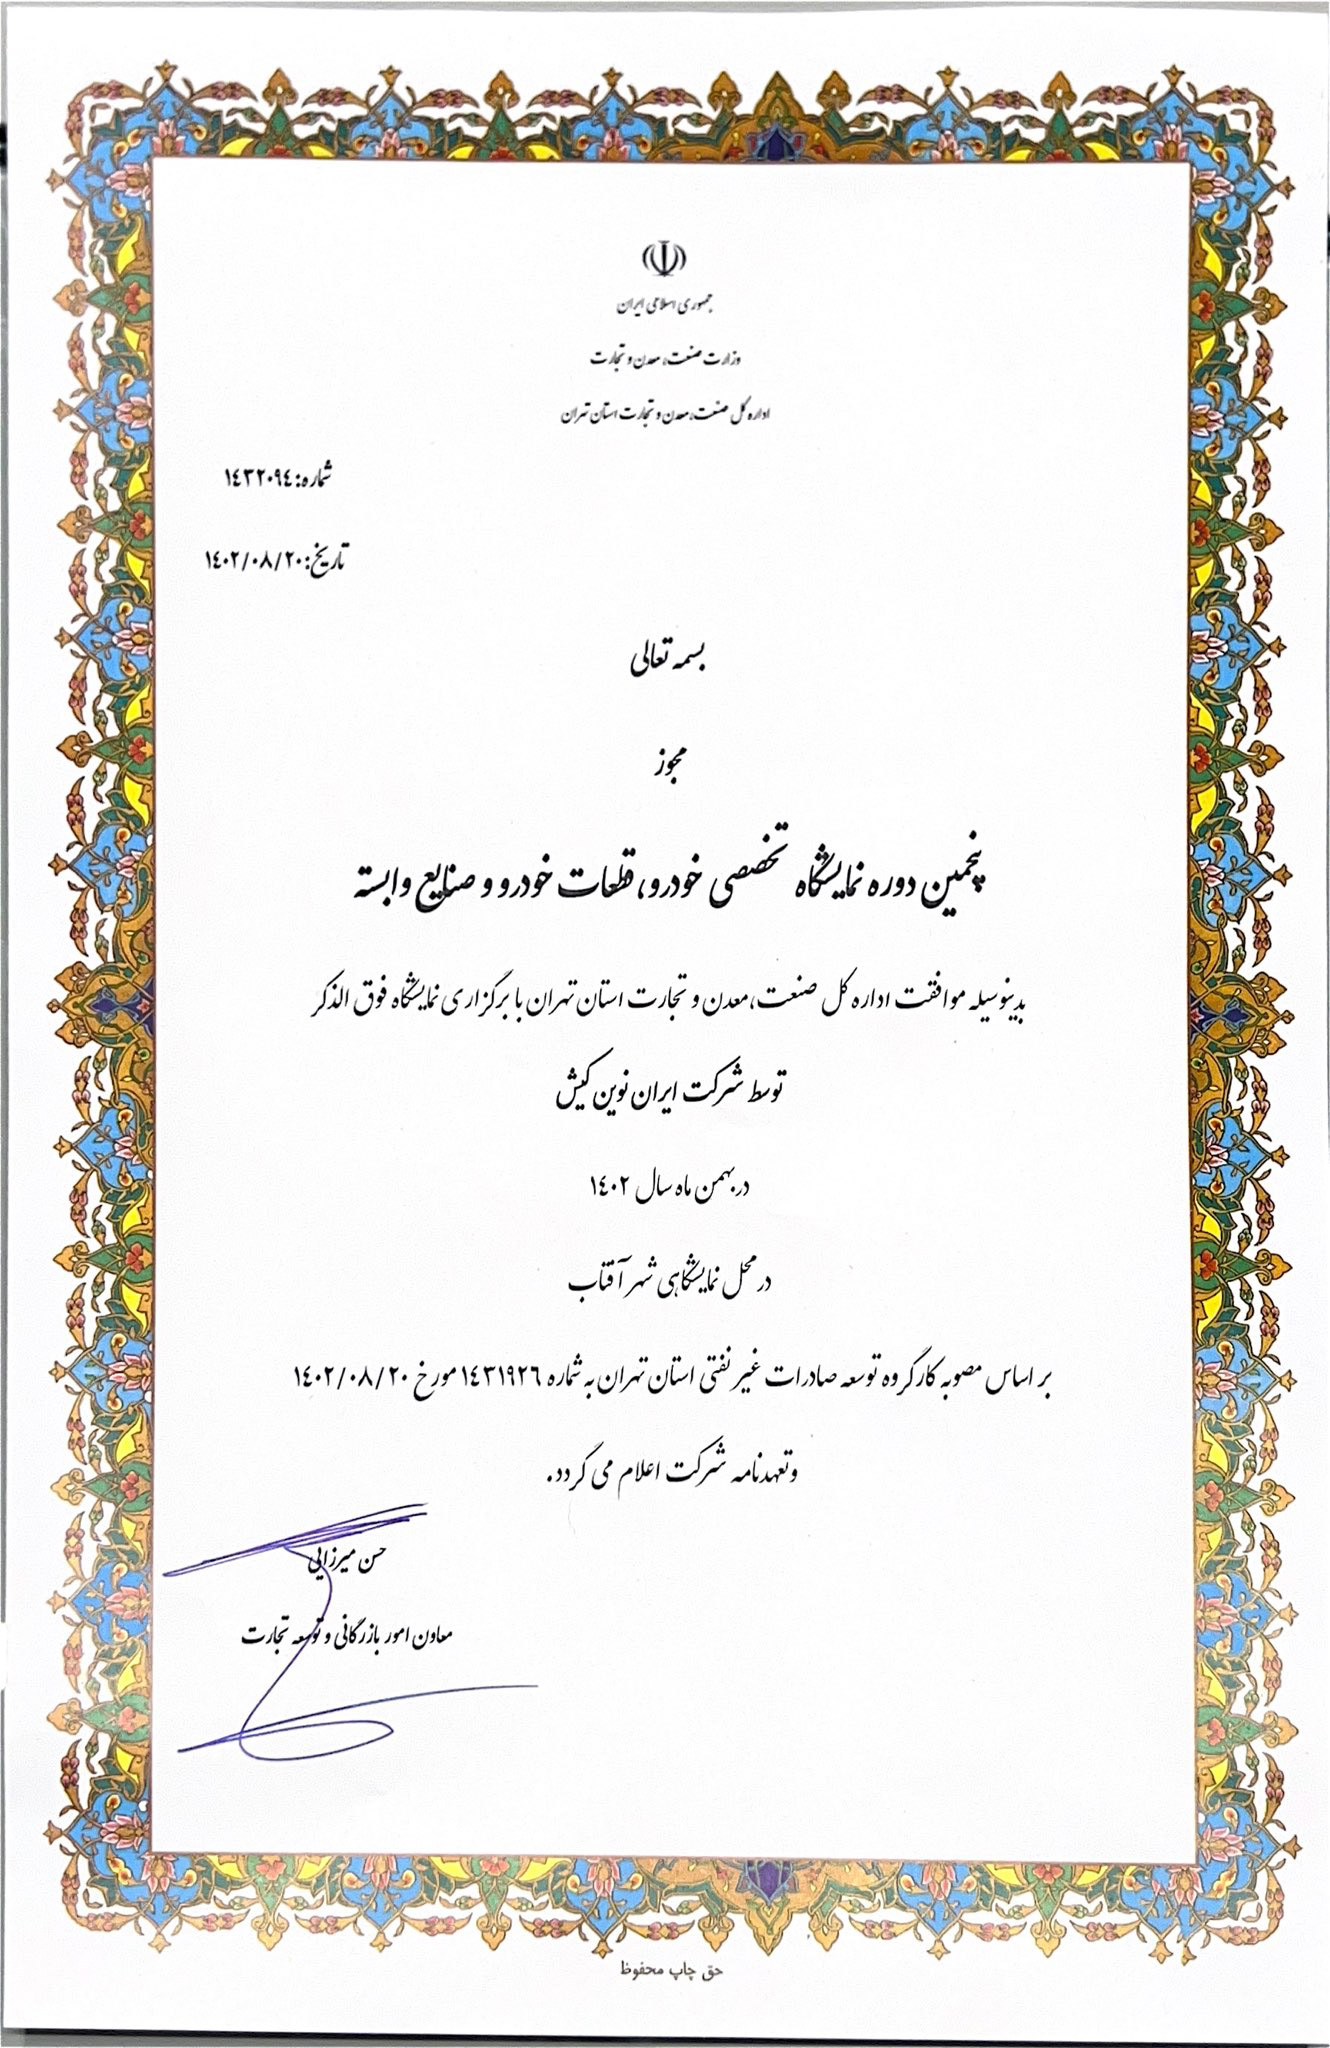 جمهوری اسلامی ایران
وزارت صنعت، معدن و تجارت
اداره کل صنعت، معدن و تجارت استان تهران
شماره: ۱۴۳۲۰۹۴
تاریخ: ۱۴۰۲/۰۸/۲۰
بسمه تعالی
مجوز
پنجمین دوره نمایشگاه تخصصی خودرو، قطعات خودرو و صنایع وابسته
بدینوسیله موافقت اداره کل صنعت، معدن و تجارت استان تهران با برگزاری نمایشگاه فوق الذکر
توسط شرکت ایران نوین کیش
در بهمن ماه سال ۱۴۰۲
در محل نمایشگاهی شهر آفتاب
بر اساس مصوبه کارگروه توسعه صادرات غیر نفتی استان تهران به شماره ۱۴۳۱۹۲۶ مورخ ۱۴۰۲/۰۸/۲۰
و تعهدنامه شرکت اعلام می گردد.
حسن میرزایی
معاون امور بازرگانی و توسعه تجارت
حق چاپ محفوظ